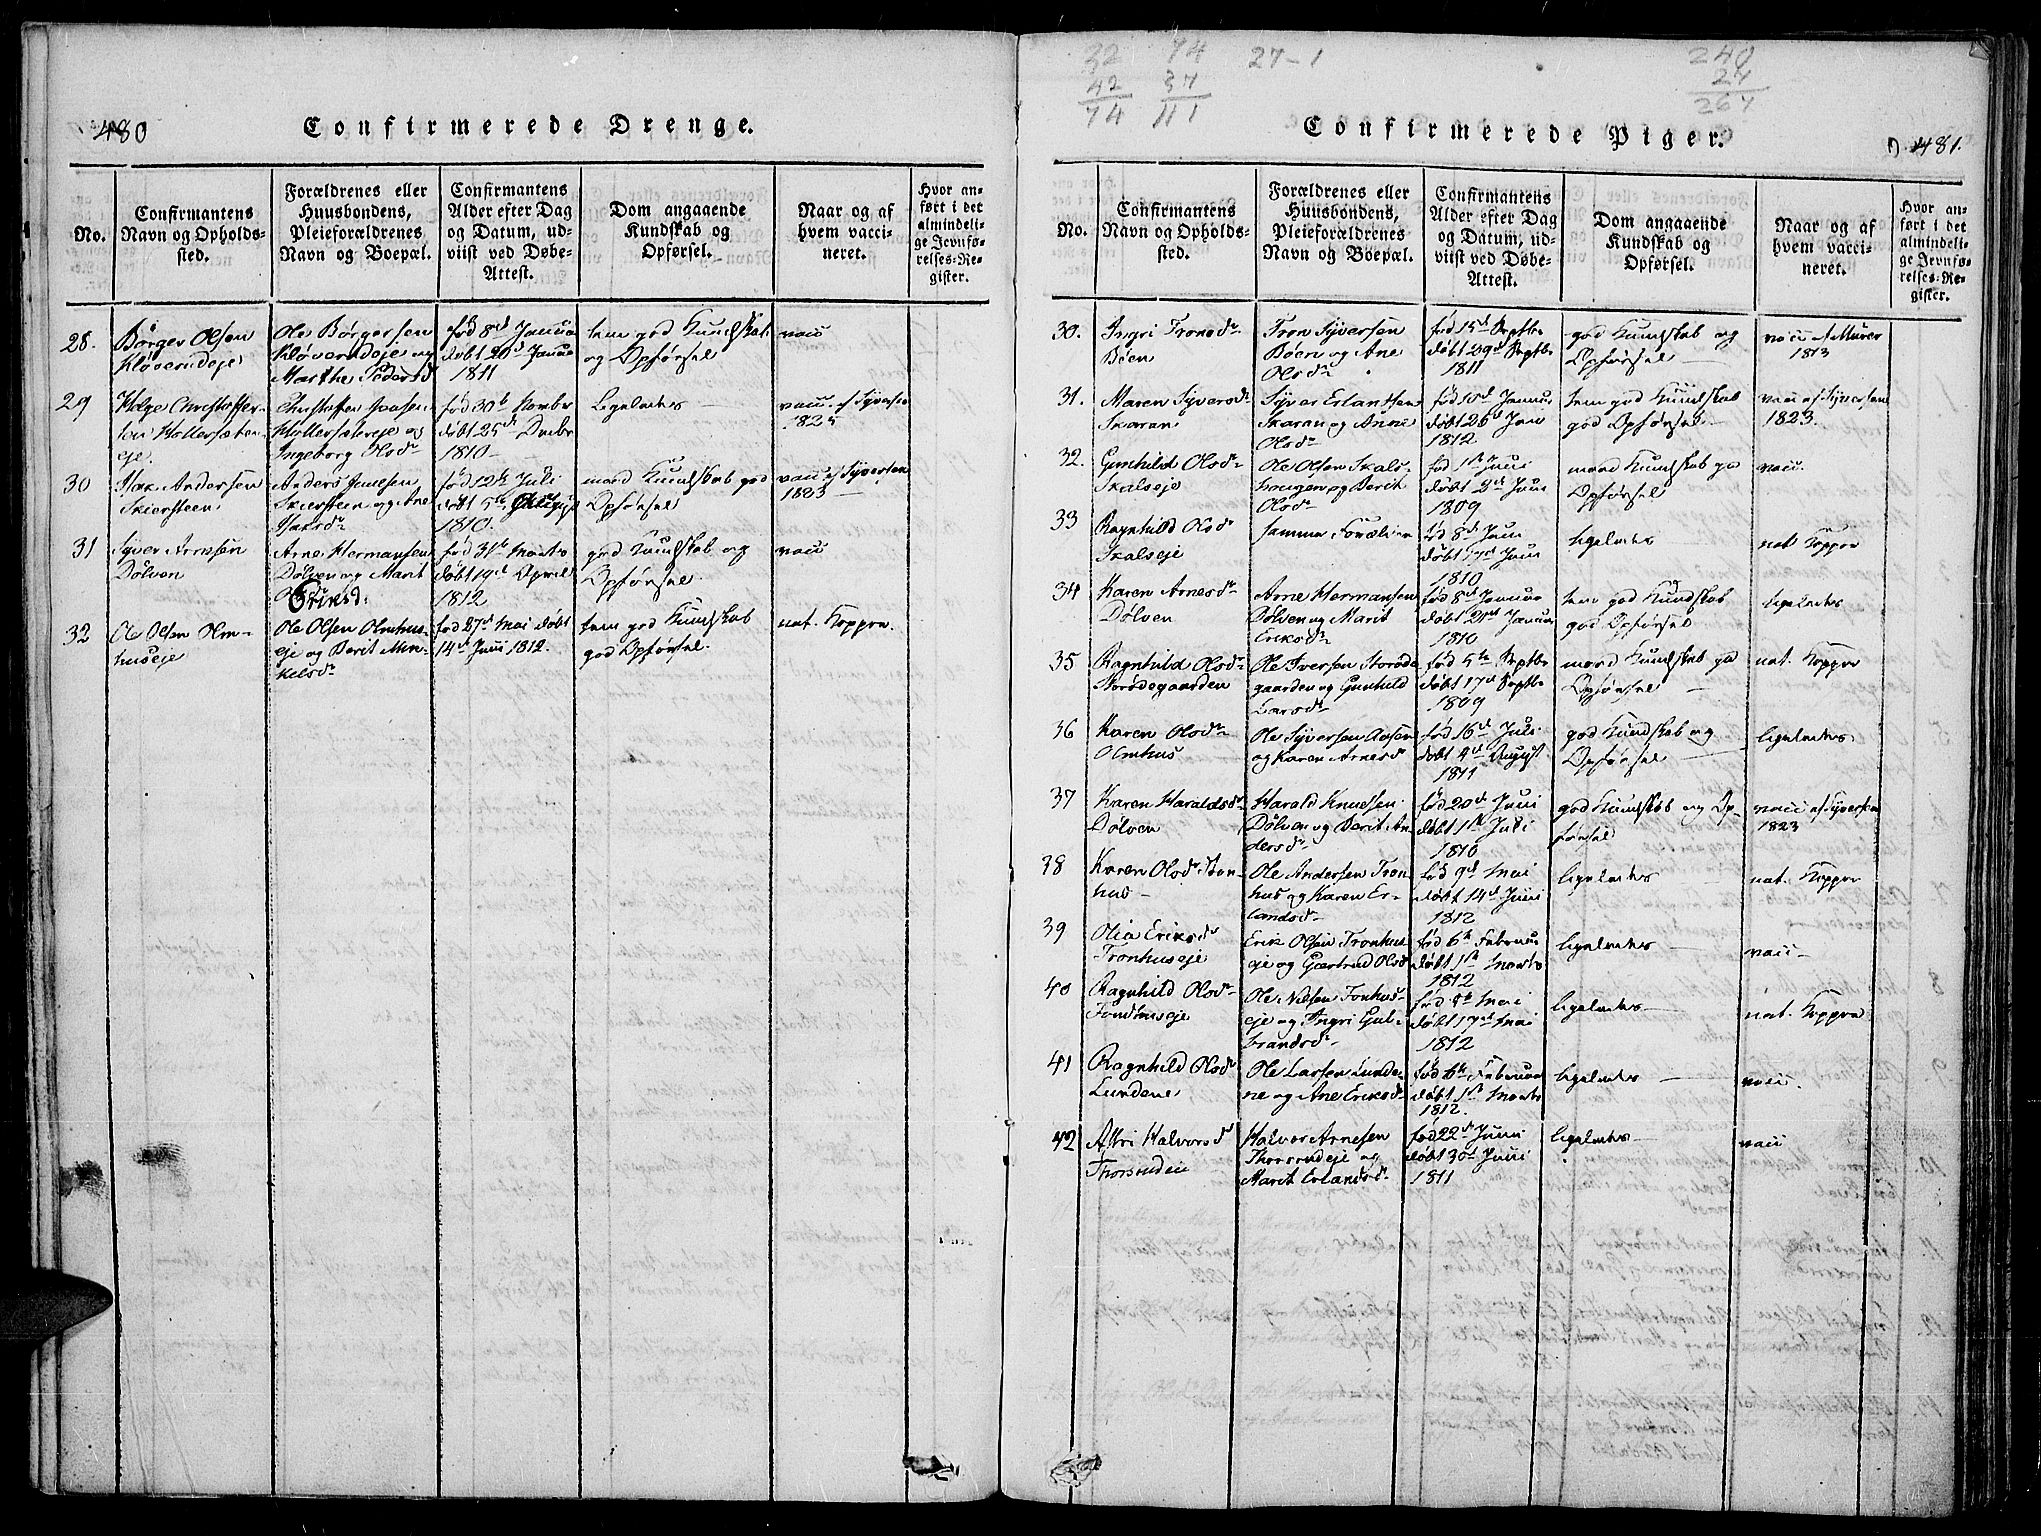 480
Confirmerede Drenge.
No.
Confirmantens
Navn og Opholds-
sted.
Forældrenes eller
Huusbondens,
Pleieforældrenes
Navn og Boepæl.
Confirmantens
Alder efter Dag
og Datum, ud-
viist ved Døbe-
Attest.
Dom angaaende
Kundskab og
Opførsel.
Naar og af
hvem vacci-
neret.
Hvor an-
ført i det
almindeli-
ge Jevnfø-
relses-Re-
gister.
28.
Børger Olsen
Kløverudeje
Ole Børgersen
Kløverudeje og
Marthe Pedersd
fød 8d Janua
døbt 20d Janua
1811
tem god Kundskab
og Opførsel
vacc
29
Helge Christoffer-
sen Hollersæter-
eje.
Christoffer
Hollersætereje og
Ingeborg Olsdr
fød 30te Novbr
døbt 25de Decbr
1810
ligeledes
vacc. af Syversen
1825
30
Isak Andersen
Skiersteen
Anders
Skiersteen og Ane
Isaksdr
fød 12te Juli
døbt 5te August
1810.
maad. Kundskab god
Opførsel
vacc af Syversen
1823
31
Syver Arnesen
Dølven
Arne Hermansen
Dølven og Marit
Eriksd:
fød 31te Marts
døbt 19d April
1812
god Kundskab og
Opførsel.
vacc
32
Ole Olsen Olm-
huseje
Ole Olsen Olmhus-
eje og Berit Mik-
kelsdr
fød 27d Mai døbt
14d Juni 1812.
tem god Kundskab
god Opførsel.
nat. Kopper.
32
42
74
74
37
111
27-1
240
27
267
Confirmerede Piger.
481.
No.
Confirmantens
Navn og Opholds-
sted.
Forældrenes eller
Huusbondens,
Pleieforældrenes
Navn og Boepæl.
Confirmantens
Alder efter Dag
og Datum, ud-
viist ved Døbe-
Attest.
Dom angaaende
Kundskab og
Opførsel.
Naar og af
hvem vacci-
neret.
Hvor an-
ført i det
almindeli-
ge Jevnfø-
relses-Re-
gister.
30.
Ingri Tronsdr
Bøen
Tron Syversen
Bøen og Ane
Olsdr
fød 15d Septbr
døbt 29d Septbr
1811
god Kundskab og
Opførsel
vacc Murer
1813
31.
Maren Syversdr
Skaran
Syver Erlandsen
Skaran og Anne
Olsdr
fød 10d Janua
døbt 26d Jan
1812
tem god Kundskab
god Opførsel
vacc af Syversen
1823.
32.
Gunhild Olsdr
Skalseje
Ole Olsen Skals-
haugen og Berit
Olsdr
fød 1st Juni
døbt 2d Juni
1809
maad Kundskab go
Opførsel
vacc.
33
Ragnhild Olsdr
Skalseje
samme Forældre
fød 8d Juni
døbt 17d Juni
1810
ligeledes
nat. Kopper
34
Karen Arnesdr
Dølven
Arne Hermansen
Dølven og Marit
Eriksdr
fød 8d Janua
døbt 21d Janua
1810
tem god Kundskab
god Opførsel
ligeledes
35
Ragnhild Olsdr
Storødegaarden
Ole Iversen Storøde
gaarden og Gunhild
Larsdr
fød 5te Septbr
døbt 17d Septbr
1809
maad Kundskab go
Opførsel
nat. Kopper
36
Karen Olsdr
Olmhus
Ole Syversen Aasen
og Karen Arnesd
fød 16d Juli
døbt 4d August
1811
god Kundskab og
Opførsel
ligeledes.
37
Karen Haraldsdr
Dølven
Harald Knudsen
Dølven og Berit An
dersdr
fød 20d Juni
døbt 1st Juli
1810
god Kundskab og Op-
førsel
vacc af Syversen
1823
38
Karen Olsdr Tron-
hus
Ole Andersen Tron
hus og Karen Er-
landsdr
fød 9d Mai
døbt 14d Juni
1812
ligeledes
nat. Kopper
39
Olia Eriksd
Tronhuseje
Erik Olsen Tronhus
eje og Gjertrud Olsd
fød 6te Februa
døbt 1st Marts
1812
ligeledes
vacc
40
Ragnhild Olsdr
Fonhuseje
Ole Nilsen Fonhus-
eje og Ingri Gul-
brandsdr
fød Mai
døbt 17d Mai
1812
ligeledes
nat. Kopper
41
Ragnhild Olsdr
Lundene
Ole Larsen Lunde-
ne og Ane Eriksdr
fød 6te Februa
døbt 1st Marts
1812.
ligeledes
vacc.
42
Astri Halvorsd
Thorsrudeie
Halvor Arnesen
Thorsrudeje og
Marit Erlandsdr
fød 22d Juni
døbt 30d Juni
1811
ligeledes
vacc